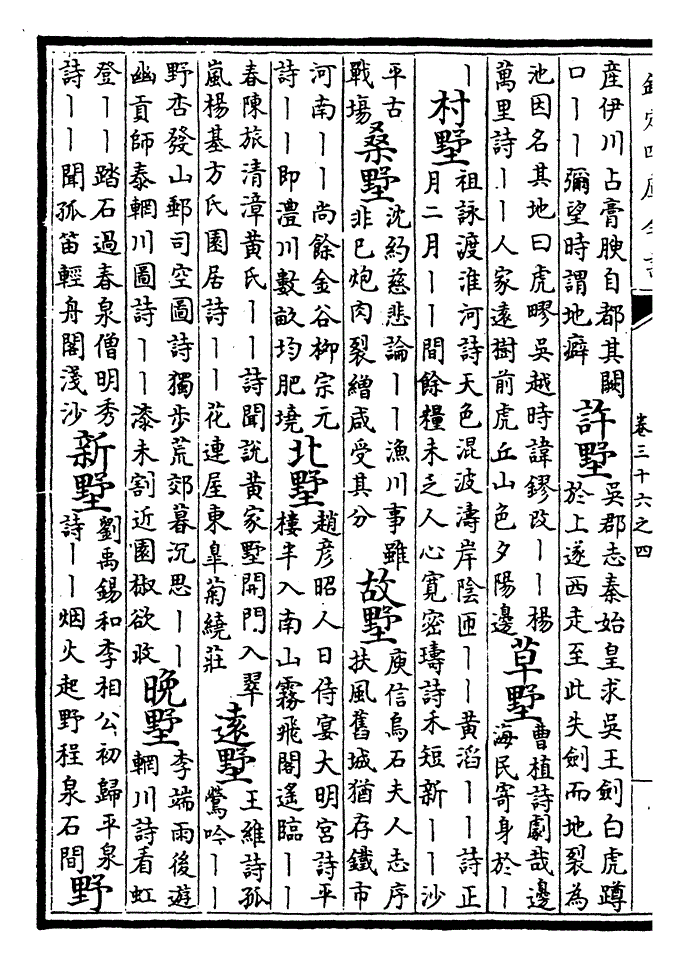 欽定四庫全書
卷三十六之四
産伊川占膏腴自都其闢
口丨丨彌望時謂地癖
許墅
吳郡志秦始皇求吳王劍白虎蹲
於上遂西走至此失劍而地裂為
池因名其地曰虎疁吳越時諱鏐改丨丨楊
萬里詩丨丨人家逺樹前虎丘山色夕陽邊
草墅
曹植詩劇哉邊
海民寄身於丨
丨
村墅
祖詠渡淮河詩天色混波濤岸陰匝丨丨黃滔丨丨詩正
月二月丨丨間餘糧未乏人心寬密璹詩禾短新丨丨沙
平古
戰塲
桑墅
沈約慈悲論丨丨漁川事雖
非巳炮肉裂繒咸受其分
故墅
庾信烏石夫人志序
扶風舊城猶存鐵市
河南丨丨尚餘金谷柳宗元
詩丨丨即澧川數畝均肥墝
北墅
趙彦昭人日侍宴大明宮詩平
樓半入南山霧飛閣遙臨丨丨
春陳旅清漳黃氏丨丨詩聞說黃家墅開門入翠
嵐楊基方氏園居詩丨丨花連屋東臯菊繞莊
逺墅
王維詩孤
鶯吟丨丨
野杏發山郵司空圖詩獨步荒郊暮沉思丨丨
幽貢師泰輞川圖詩丨丨漆未割近園椒欲收
晚墅
李端雨後遊
輞川詩看虹
登丨丨踏石過春泉僧明秀
詩丨丨聞孤笛輕舟閣淺沙
新墅
劉禹錫和李相公初歸平泉
詩丨丨烟火起野程泉石間
野